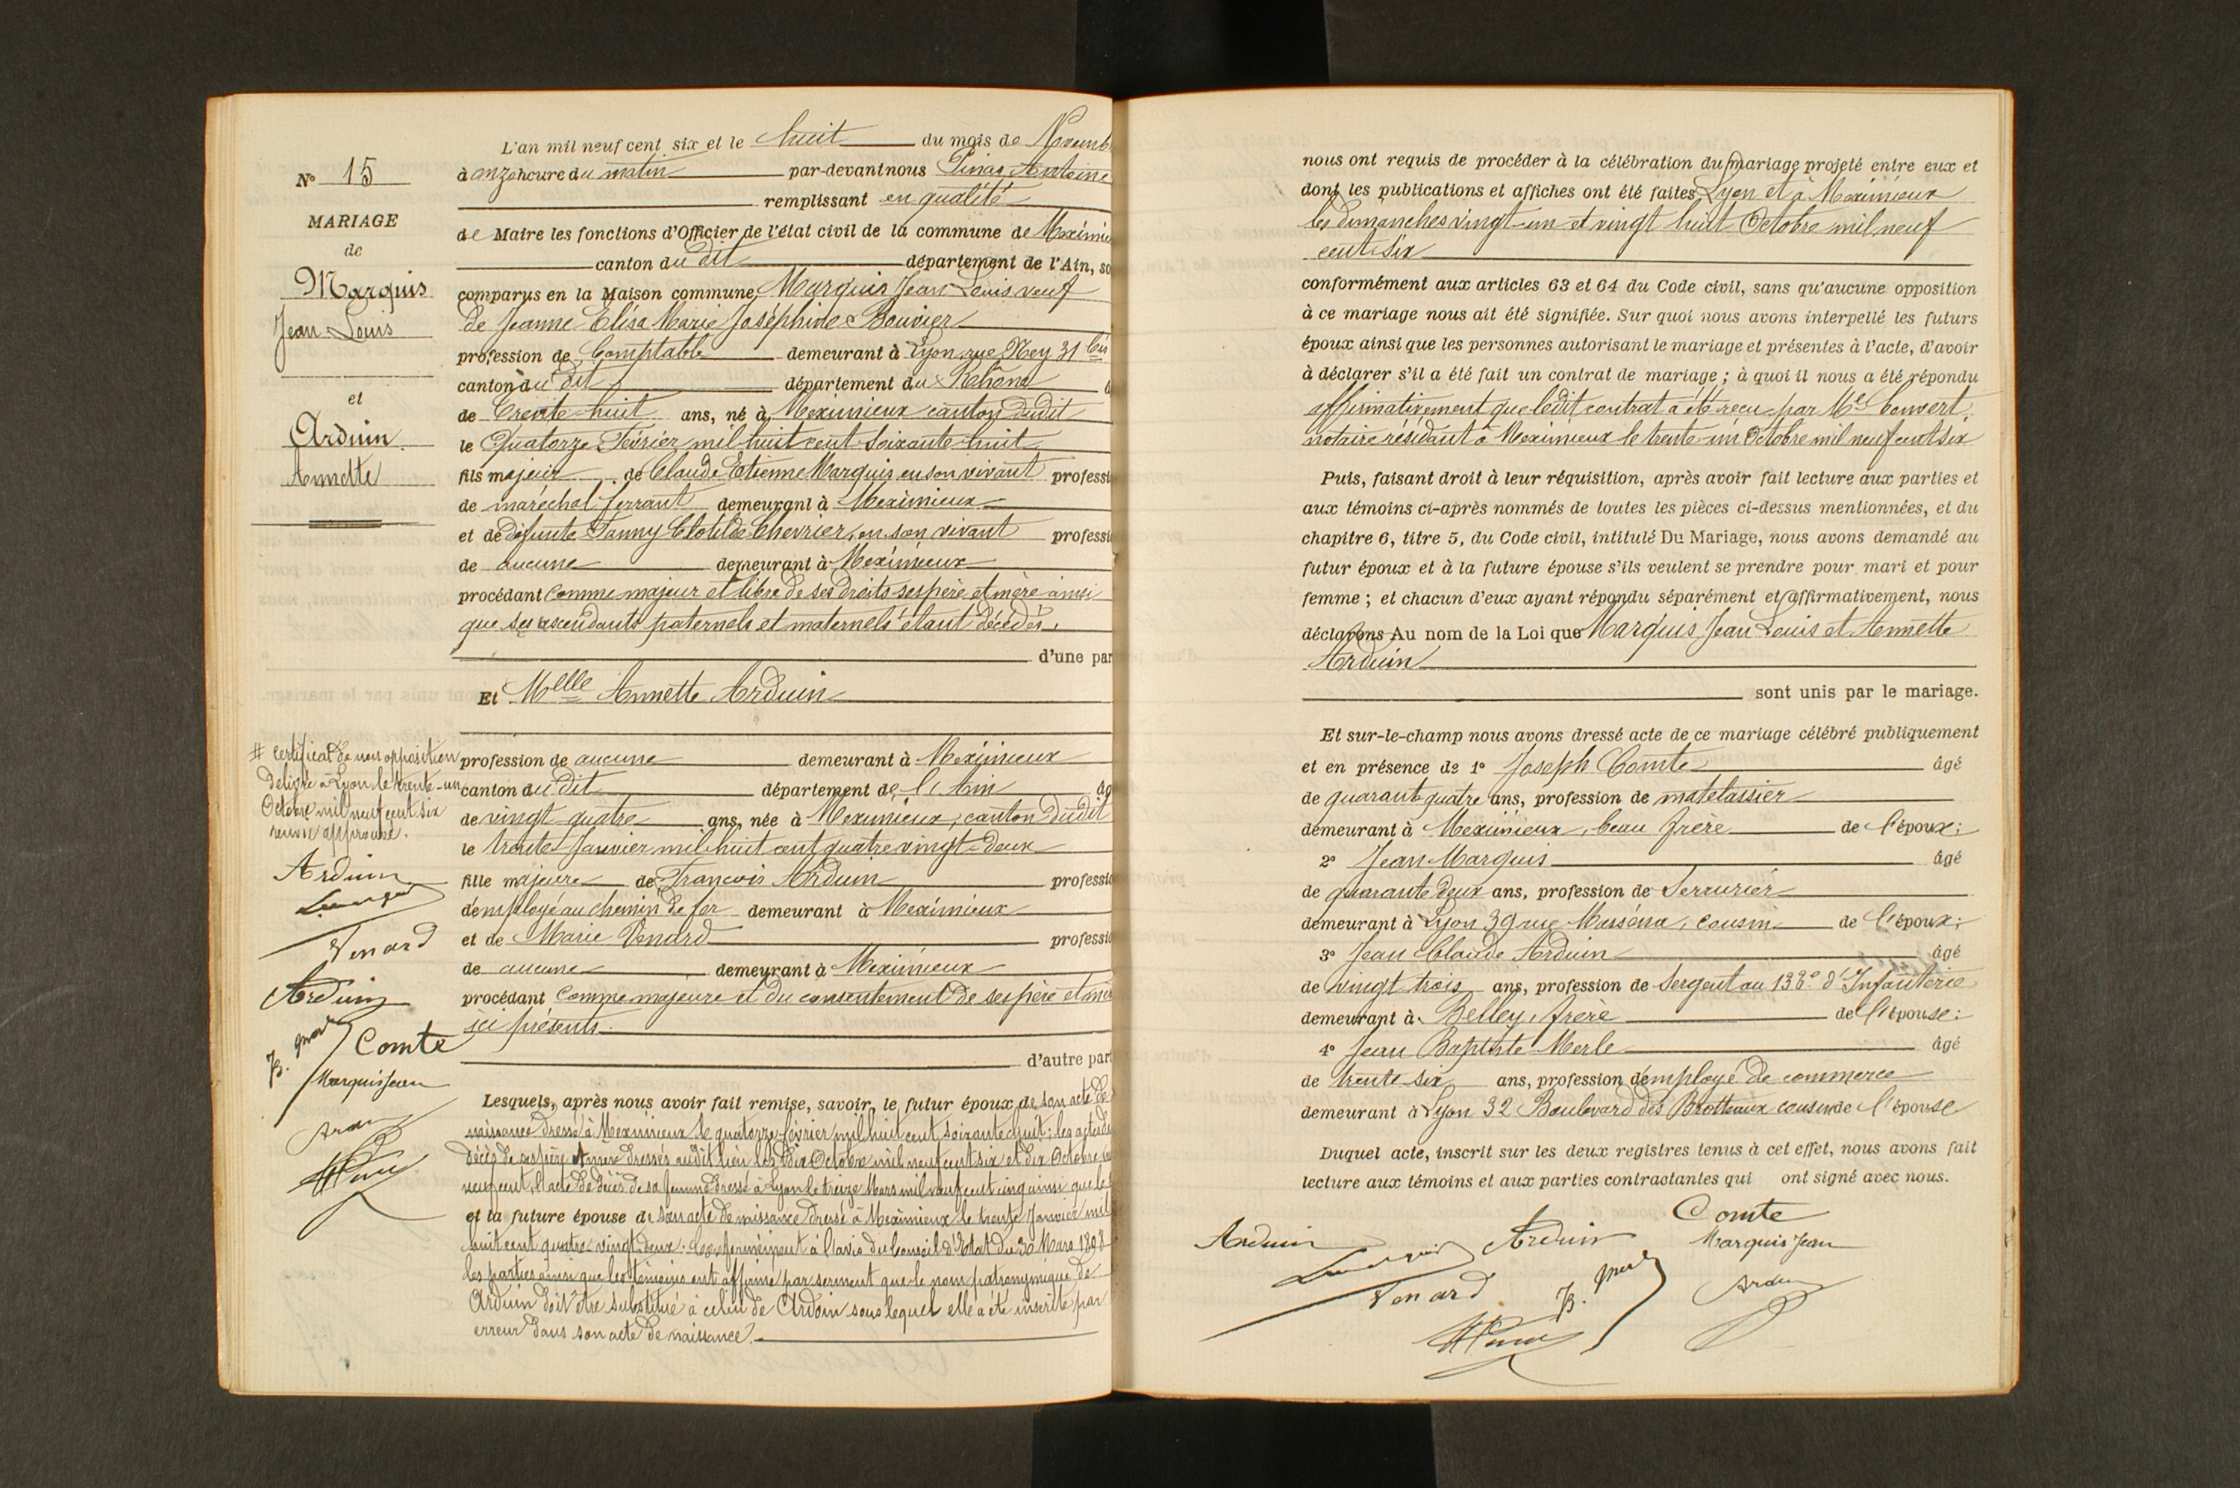 N° 15
MARIAGE
de
Marquis
Jean Louis
et
Arduin
Annette
L'an mil neuf cent six et le huit du mois de Novemb
à onze heure du matin par-devant nous Antoine
remplissant en qualité
de Maire les fonctions d'Officier de l'état civil de la commune de Meximie
canton du dit département de l'Ain, so
comparus en la Maison commune, Marquis Jean Louis veuf
de Jeanne Elisa Marie Joséphine Bouvier
profession de Comptable demeurant à Lyon rue Ney 31 bis
canton du dit département du Rhône
de trente-huit ans, né à Meximieux canton dudit
le Quatorze Février mil huit cent soixante-huit
fils majeur de Claude Etienne Marquis en son vivant professi
de maréchal ferrant demeurant à Meximieux
et de défunte Fanny Clotilde Chevrier, en son vivant professi
de aucune demeurant à Meximieux
procédant comme majeur et libre de ses droits ses père et mère ainsi
que ses ascendants paternels et maternels étant décédés.
d'une par
Et Melle Annette Arduin
profession de aucune demeurant à Meximieux
canton du dit département de l'Ain âg
de vingt quatre ans, née à Meximieux, canton dudit
le trente Janvier mil huit cent quatre vingt-deux
fille majeure de François Arduin professio
d'employé au chemin de fer demeurant à Meximieux
et de Marie Venard professio
de aucune demeurant à Meximieux
procédant comme majeure et du consentement de ses père et mère
ici présents.
d'autre part
Lesquels, après nous avoir fait remise, savoir, le futur époux de son acte de
naissance dressé à Meximieux le quatorze février mil huit cent soixante huit; les actes de
décès de ses père et mère dressés audit lieu les dix Octobre mil neuf cent six et dix Octobre
neuf cent, l'acte de décès de sa femme dressé à Lyon le treize Mars mil neuf cent cinq ainsi que le #
et la future épouse de son acte de naissance dressé à Meximieux le trente Janvier mil
huit cent quatre-vingt-deux. Conformément à l'avis du Conseil d'Etat du 30 Mars 1808
les parties ainsi que les témoins ont affirmé par serment que le nom patronymique de
Arduin doit être substitué à celui de Ardoin sous lequel elle a été inscrite par
erreur dans son acte de naissance.
# certificat de non opposition
délivré à Lyon le trente-un
Octobre mil neuf cent six
renvoi approuvé.
Arduin
Venard
Arduin
Comte
Marquis Jean
nous ont requis de procéder à la célébration du mariage projeté entre eux et
dont les publications et affiches ont été faites Lyon et à Meximieux
les dimanches vingt-un et vingt huit Octobre mil neuf
cent six
conformément aux articles 63 et 64 du Code civil, sans qu'aucune opposition
à ce mariage nous ait été signifiée. Sur quoi nous avons interpellé les futurs
époux ainsi que les personnes autorisant le mariage et présentes à l'acte, d'avoir
à déclarer s'il a été fait un contrat de mariage ; à quoi il nous a été répondu
affirmativement que ledit contrat a été reçu par Me Convert,
notaire résidant à Meximieux le trente-un Octobre mil neuf cent six
Puis, faisant droit à leur réquisition, après avoir fait lecture aux parties et
aux témoins ci-après nommés de toutes les pièces ci-dessus mentionnées, et du
chapitre 6, titre 5, du Code civil, intitulé Du Mariage, nous avons demandé au
futur époux et à la future épouse s'ils veulent se prendre pour mari et pour
femme ; et chacun d'eux ayant répondu séparément et affirmativement, nous
déclarons Au nom de la Loi que Marquis Jean Louis et Annette
Arduin
sont unis par le mariage.
Et sur-le-champ nous avons dressé acte de ce mariage célébré publiquement
et en présence de 1° Joseph Comte âgé
de quarante quatre ans, profession de matelassier
demeurant à Meximieux, beau frère de l'époux;
2° Jean Marquis âgé
de quarante deux ans, profession de Serrurier
demeurant à Lyon 39 rue Masséna, cousin de l'époux;
3° Jean Claude Arduin âgé
de vingt trois ans, profession de Sergent au 133e d'Infanterie
demeurant à Belley, frère de l'épouse;
4° Jean Baptiste Merle âgé
de trente six ans, profession d'employé de commerce
demeurant à Lyon 32 Boulevard des Brotteaux cousin de l'épouse
Duquel acte, inscrit sur les deux registres tenus à cet effet, nous avons fait
lecture aux témoins et aux parties contractantes qui ont signé avec nous.
Comte
Arduin Arduin Marquis Jean
Venard